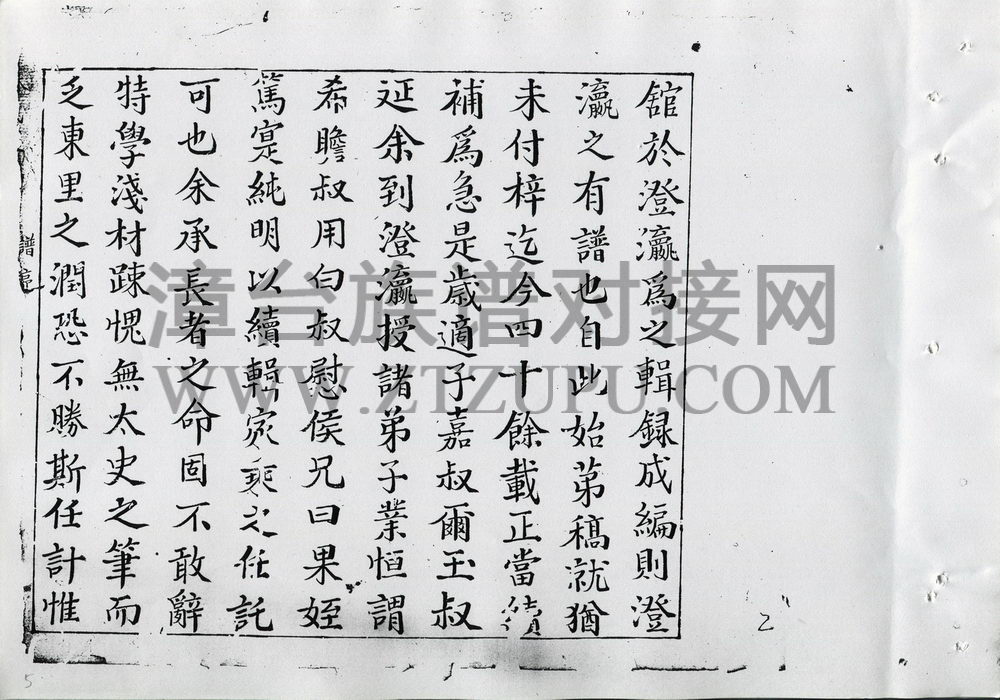 舘於澄瀛爲之輯録成編則澄
瀛之有譜也自此始苐稿就猶
未付梓迄今四十餘載正當續
補爲急是歳適子嘉叔爾玉叔
延余到澄瀛授諸弟子業恒謂
希瞻叔用白叔慰侯兄曰果姪
篤寔純明以續輯家乘之任託
可也余承長者之命固不敢辭
特學淺材踈愧無太史之筆而
乏東里之潤恐不勝斯任計惟
譜
漳台族谱对接网
WWW.ZTZUPU.COM
5